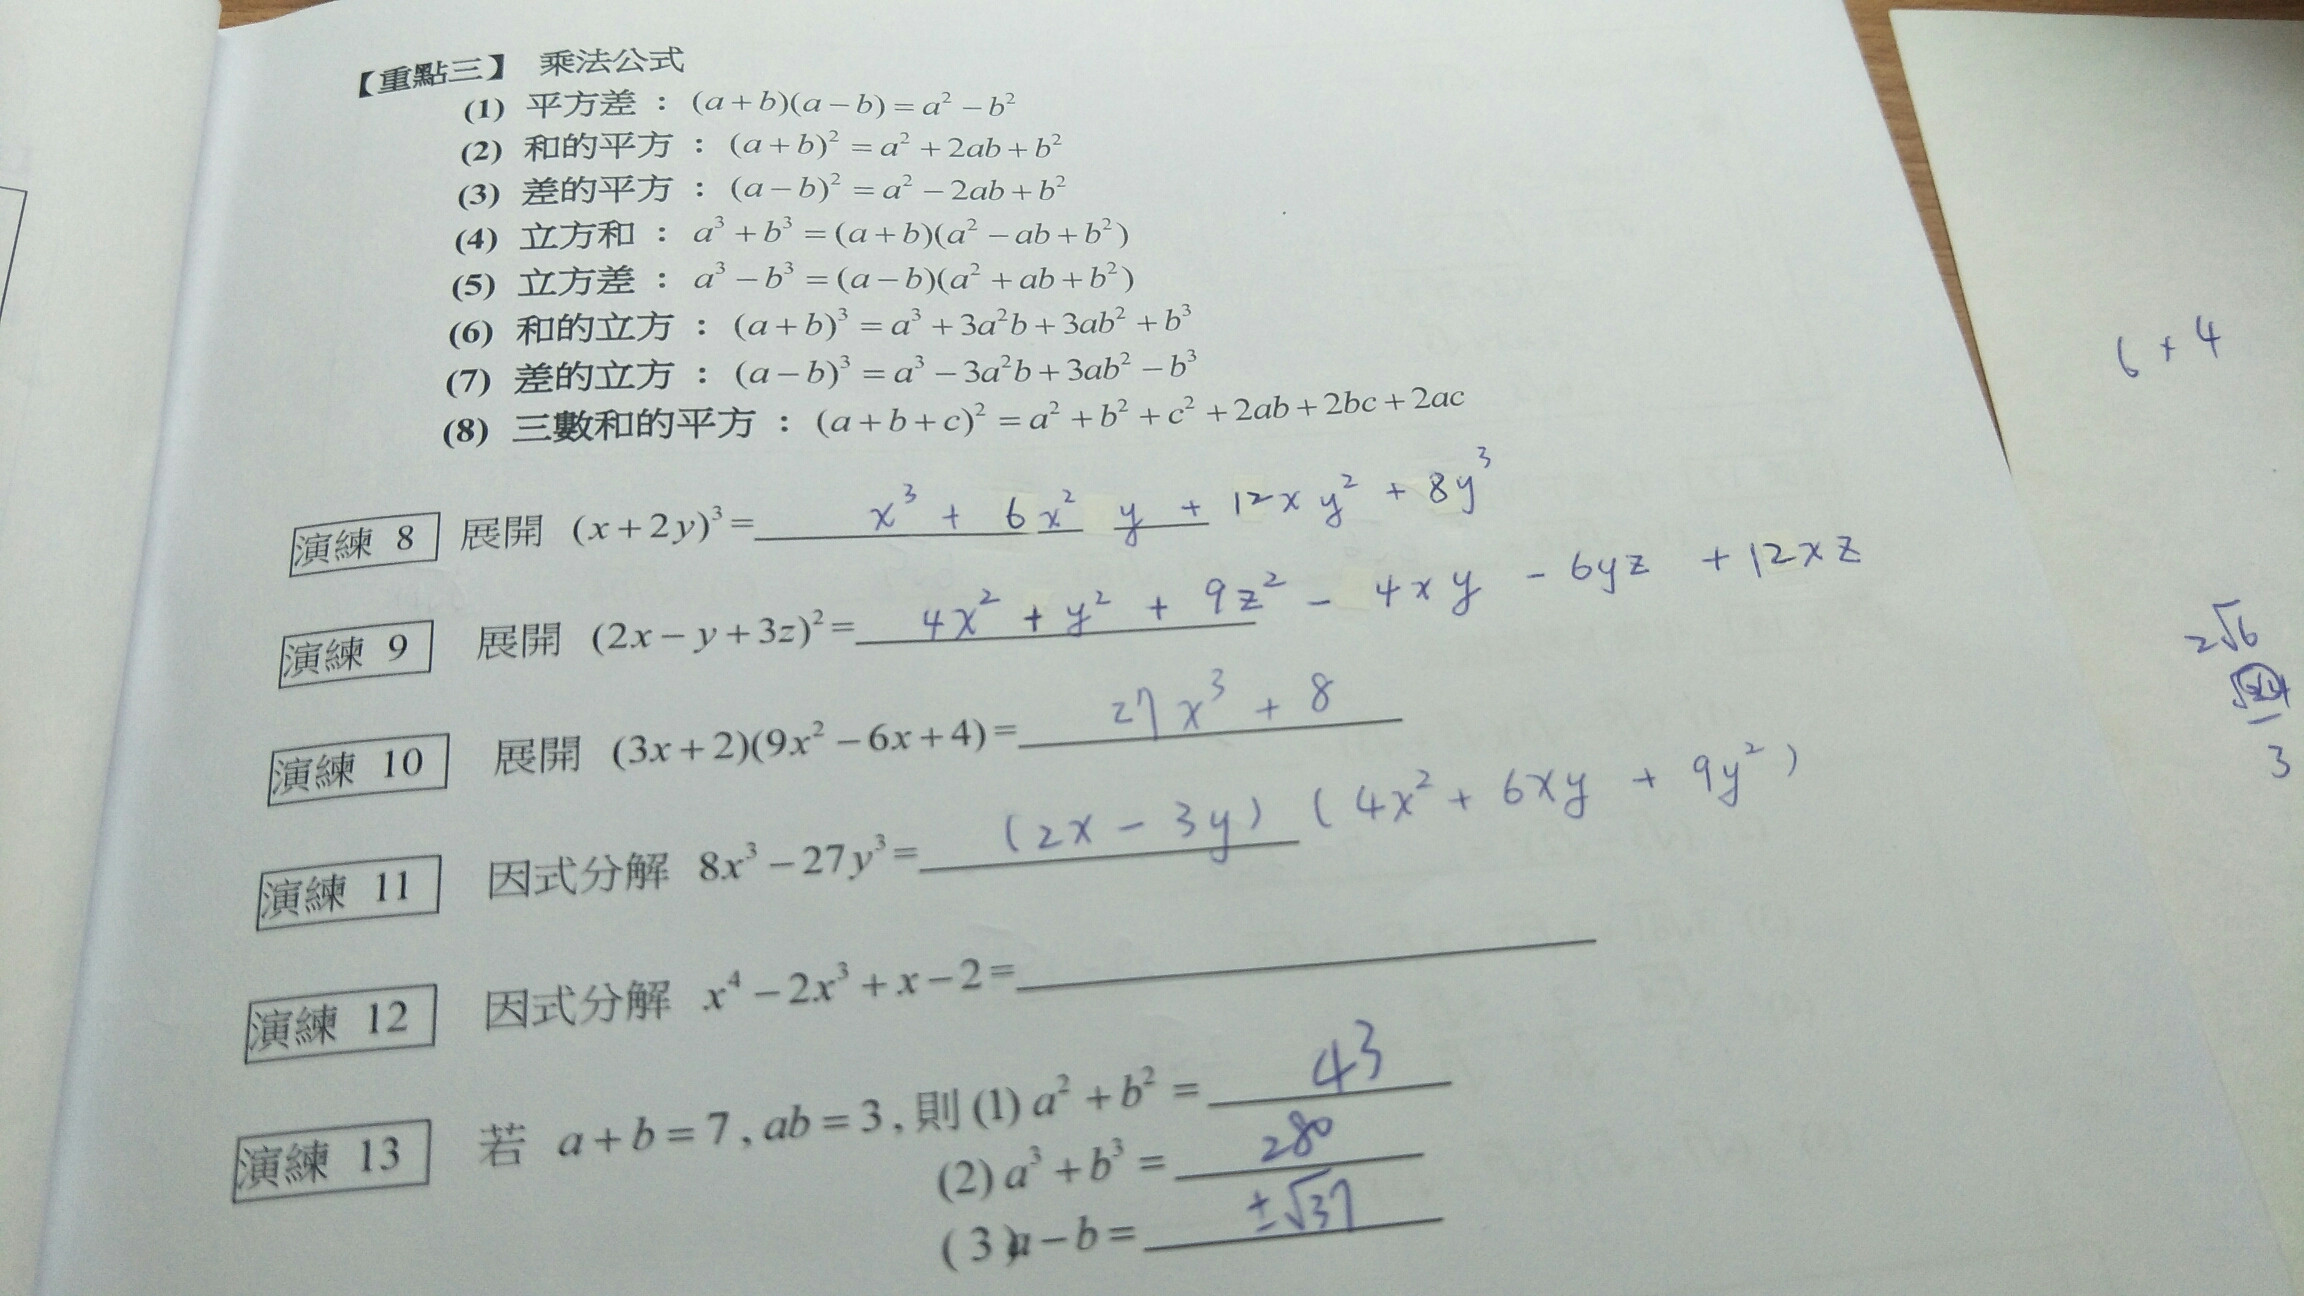 【重點三】 乘法公式
(1) 平方差：(a+b)(a−b)=a²−b²
(2) 和的平方：(a+b)²=a²+2ab+b²
(3) 差的平方：(a−b)²=a²−2ab+b²
(4) 立方和：a³+b³=(a+b)(a²−ab+b²)
(5) 立方差：a³−b³=(a−b)(a²+ab+b²)
(6) 和的立方：(a+b)³=a³+3a²b+3ab²+b³
(7) 差的立方：(a−b)³=a³−3a²b+3ab²−b³
(8) 三數和的平方：(a+b+c)²=a²+b²+c²+2ab+2bc+2ac
演練 8 展開 (x+2y)³= x³ + 6x²y + 12xy² + 8y³
演練 9 展開 (2x−y+3z)²= 4x² + y² + 9z² − 4xy − 6yz + 12xz
演練 10 展開 (3x+2)(9x²−6x+4)= 27x³ + 8
演練 11 因式分解 8x³−27y³= (2x − 3y) (4x² + 6xy + 9y²)
演練 12 因式分解 x⁴−2x³+x−2=
演練 13 若 a+b=7, ab=3, 則(1) a²+b² = 43
(2) a³+b³ = 280
(3) a−b= ±√37
6 + 4
2√6
3